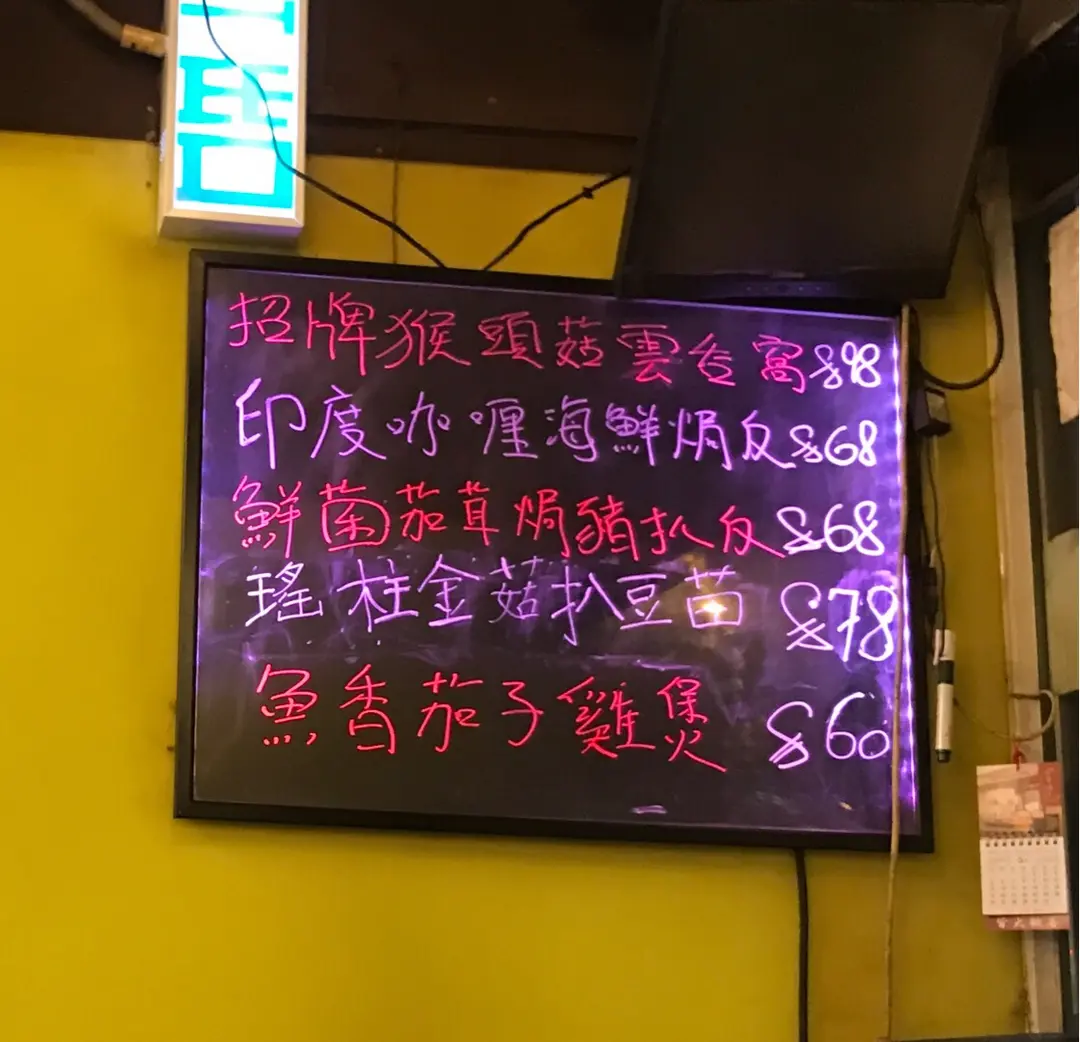 招牌猴頭菇雲吞窩$98
印度咖喱海鮮焗反$68
鮮菌茄茸焗豬扒反$68
瑤柱金菇扒豆苗 $78
魚香茄子雞煲 $60